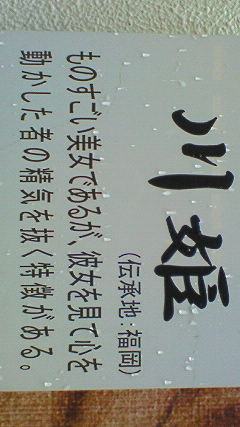 川姫
(伝承地：福岡)
ものすごい美女であるが、彼女を見て心を
動かした者の精気を抜く特徴がある。